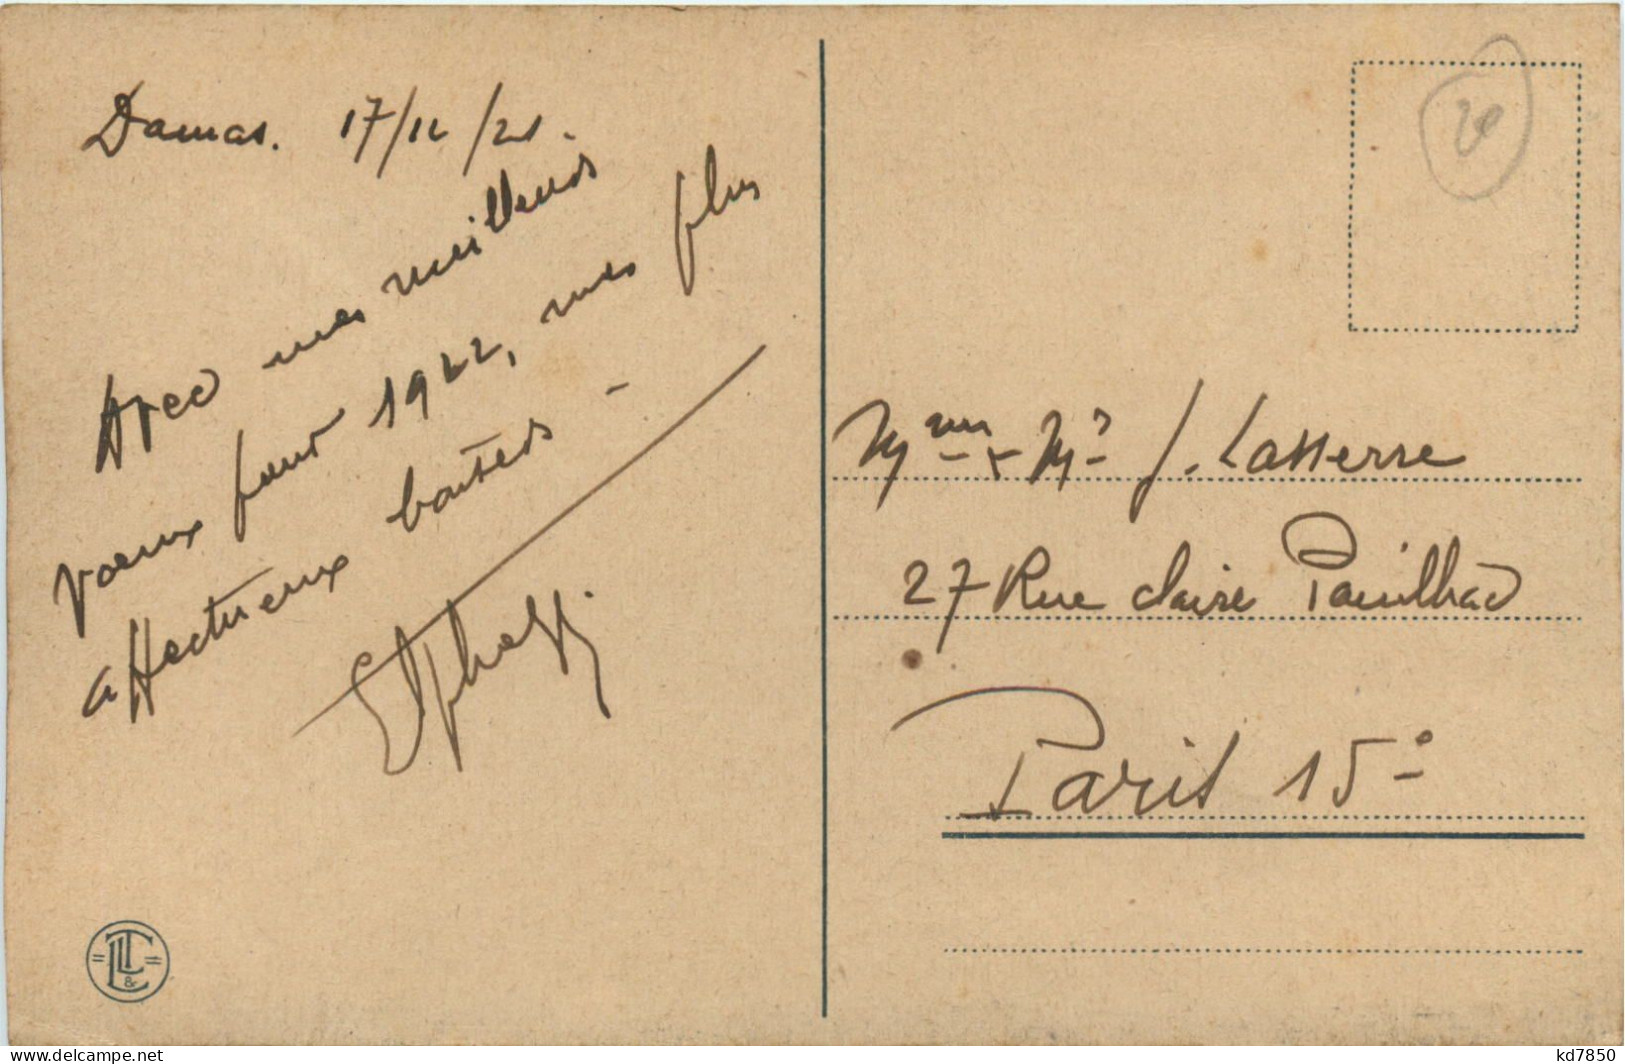 Damas. 17/12/21.
Avec mes meilleurs
voeux pour 1922, mes plus
affectueux baisers -
Mme + Mr J. Lasserre
27 Rue Claire Pauilhac
Paris 15e
LLTC &
www.delcampe.net
kd7850